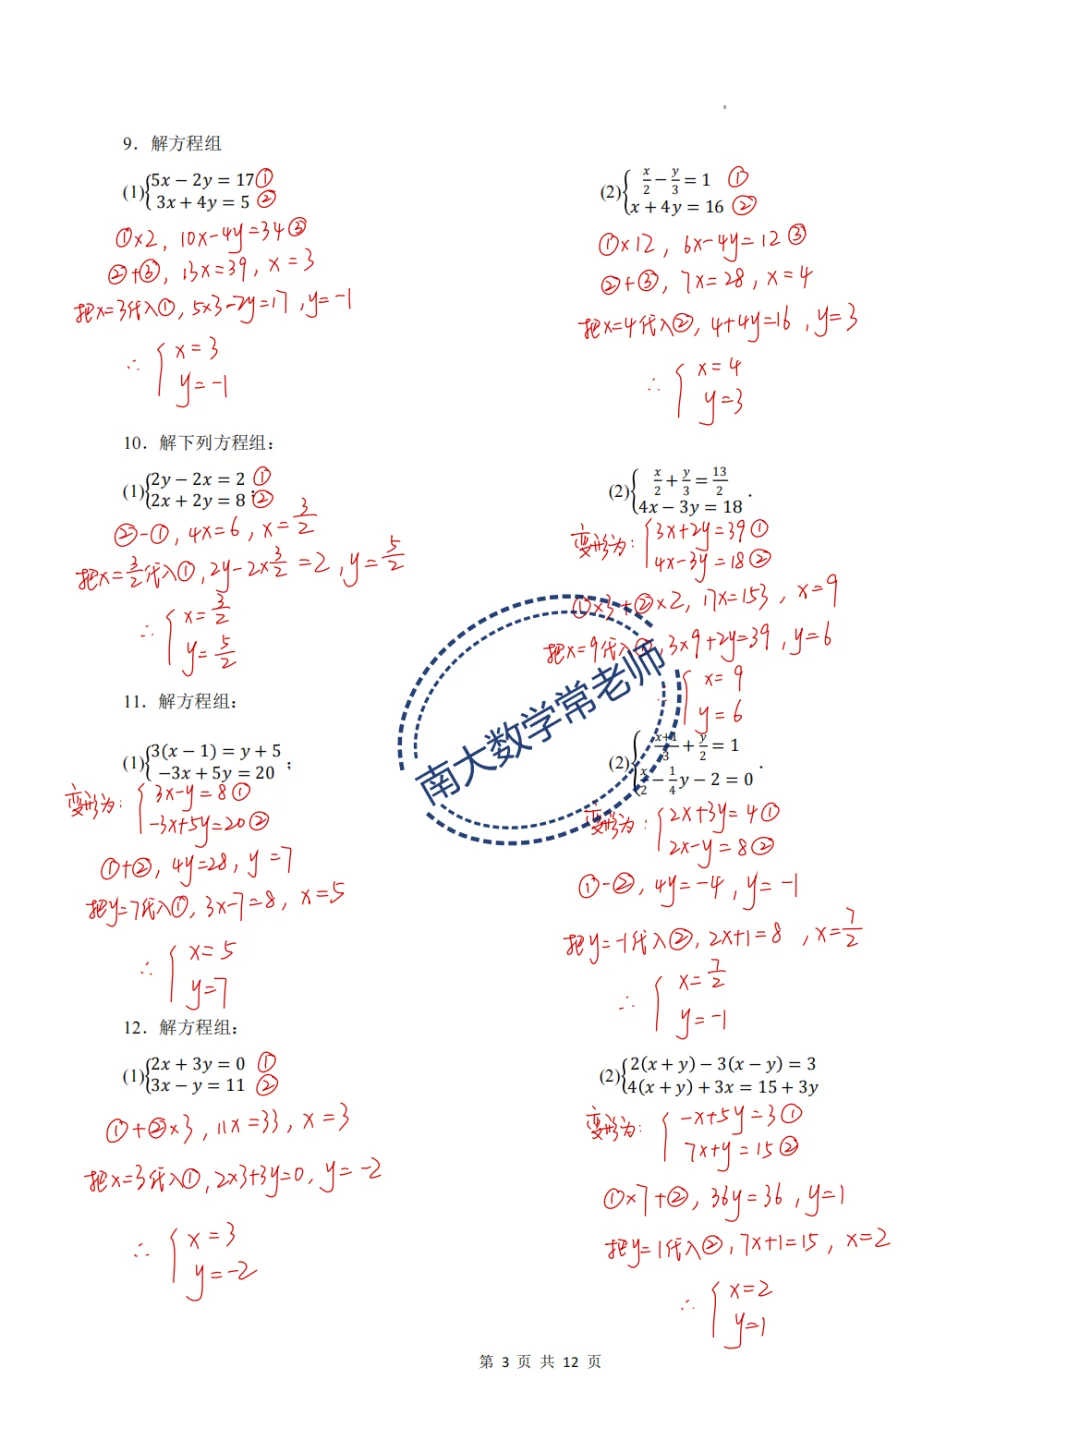 9. 解方程组
(1){5x − 2y = 17①
3x + 4y = 5 ②
①×2, 10x-4y=34③
②+③, 13x=39, x=3
把x=3代入①, 5×3-2y=17, y=-1
∴ {x=3
y=-1
(2){x/2 − y/3 = 1 ①
x + 4y = 16 ②
①×12, 6x-4y=12③
②+③, 7x=28, x=4
把x=4代入②, 4+4y=16, y=3
∴ {x=4
y=3
10. 解下列方程组：
(1){2y − 2x = 2 ①
2x + 2y = 8 ②;
②-①, 4x=6, x=3/2
把x=3/2代入①, 2y-2×3/2=2, y=5/2
∴ {x=3/2
y=5/2
(2){x/2 + y/3 = 13/2
4x − 3y = 18 .
变形为: {3x+2y=39①
4x-3y=18②
①×3+②×2, 17x=153, x=9
把x=9代入①, 3×9+2y=39, y=6
{x=9
y=6
11. 解方程组：
(1){3(x − 1) = y + 5
−3x + 5y = 20 ;
变形为: {3x-y=8①
-3x+5y=20②
①+②, 4y=28, y=7
把y=7代入①, 3x-7=8, x=5
∴ {x=5
y=7
(2){x+1/3 + y/2 = 1
x/2 − 1/4 y − 2 = 0 .
变形为: {2x+3y=4①
2x-y=8②
①-②, 4y=-4, y=-1
把y=-1代入②, 2x+1=8, x=7/2
∴ {x=7/2
y=-1
12. 解方程组：
(1){2x + 3y = 0 ①
3x − y = 11 ②
①+②×3, 11x=33, x=3
把x=3代入①, 2×3+3y=0, y=-2
∴ {x=3
y=-2
(2){2(x + y) − 3(x − y) = 3
4(x + y) + 3x = 15 + 3y
变形为: {-x+5y=3①
7x+y=15②
①×7+②, 36y=36, y=1
把y=1代入②, 7x+1=15, x=2
∴ {x=2
y=1
南大数学常老师
第 3 页 共 12 页